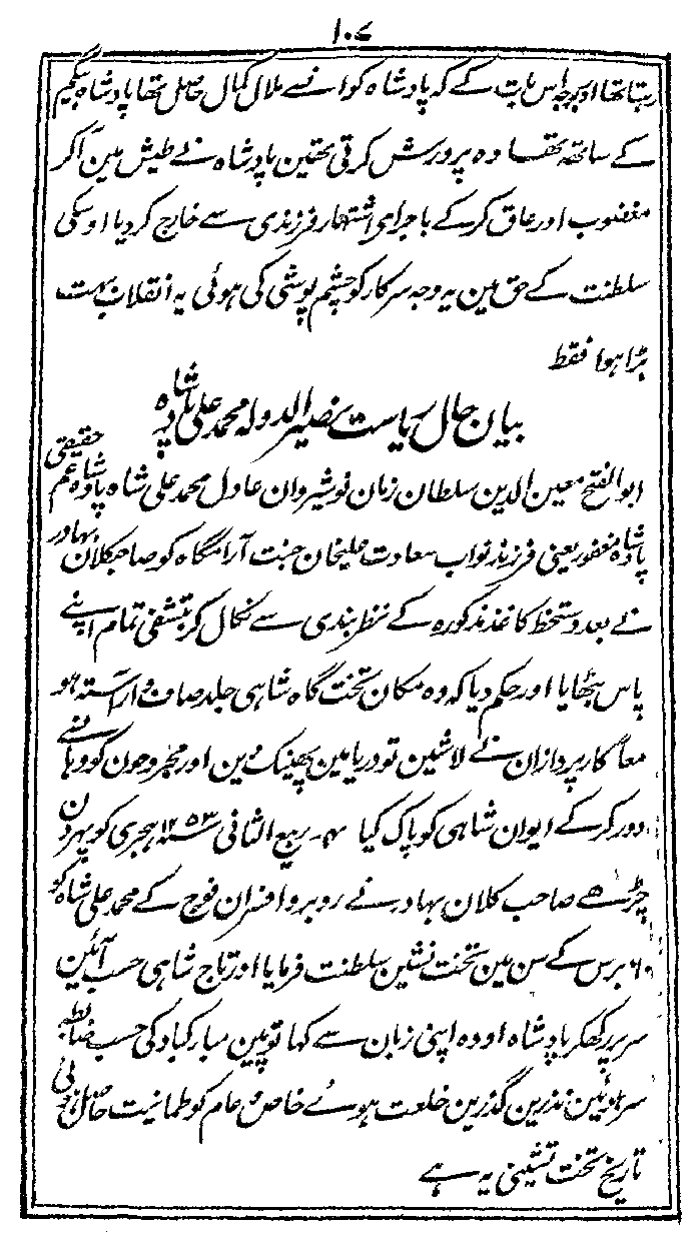 ۱۰۷
رہتا تھا اور بوجہ اس بات کے کہ پادشاہ کو انسے ملال کمال حاصل تھا پادشاہ بیگم
کے ساتھ تھا وہ پرورش کرتی تھین پادشاہ نے طیش مین آکر
مغضوب اور عاق کر کے باجرای اشتہار فرزندی سے خارج کر دیا اوسکی
سلطنت کے حق مین یہ وجہ سرکار کو چشم پوشی کی ہوئی یہ انقلاب بہت
بڑا ہوا فقط
بیان حال ریاست نصیر الدولہ محمد علی پادشاہ
ابو الفتح معین الدین سلطان زمان نوشیروان عادل محمد علی شاہ پادشاہ عم حقیقی
پادشاہ مغفور یعنی فرزند نواب سعادت علیخان جنت آرامگاہ کو صاحبکلان بہادر
نے بعد دستخط کاغذ مذکورہ کے نظر بندی سے نکال کر بتشفی تمام اپنے
پاس بٹھایا اور حکم دیا کہ وہ مکان تخت گاہ شاہی جلد صاف و آراستہ ہو
معاً کارپردازان نے لاشین تو دریا مین پھینک دین اور مجروحون کو وہانسے
دور کر کے ایوان شاہی کو پاک کیا ۴۔ ربیع الثانی ۱۲۵۳ ہجری کو پہر دن
چڑھے صاحب کلان بہادر نے روبرو افسران فوج کے محمد علی شاہ کو
۶۰ برس کے سن مین تخت نشین سلطنت فرمایا اور تاج شاہی حسب آئین
سر پر رکھکر پادشاہ اودہ اپنی زبان سے کہا توپین مبارکباد کی حسب ضابطہ
سر ہوئین نذرین گذرین خلعت ہوے خاص و عام کو طمانیت حاصل ہوئی
تاریخ تخت نشینی یہ ہے